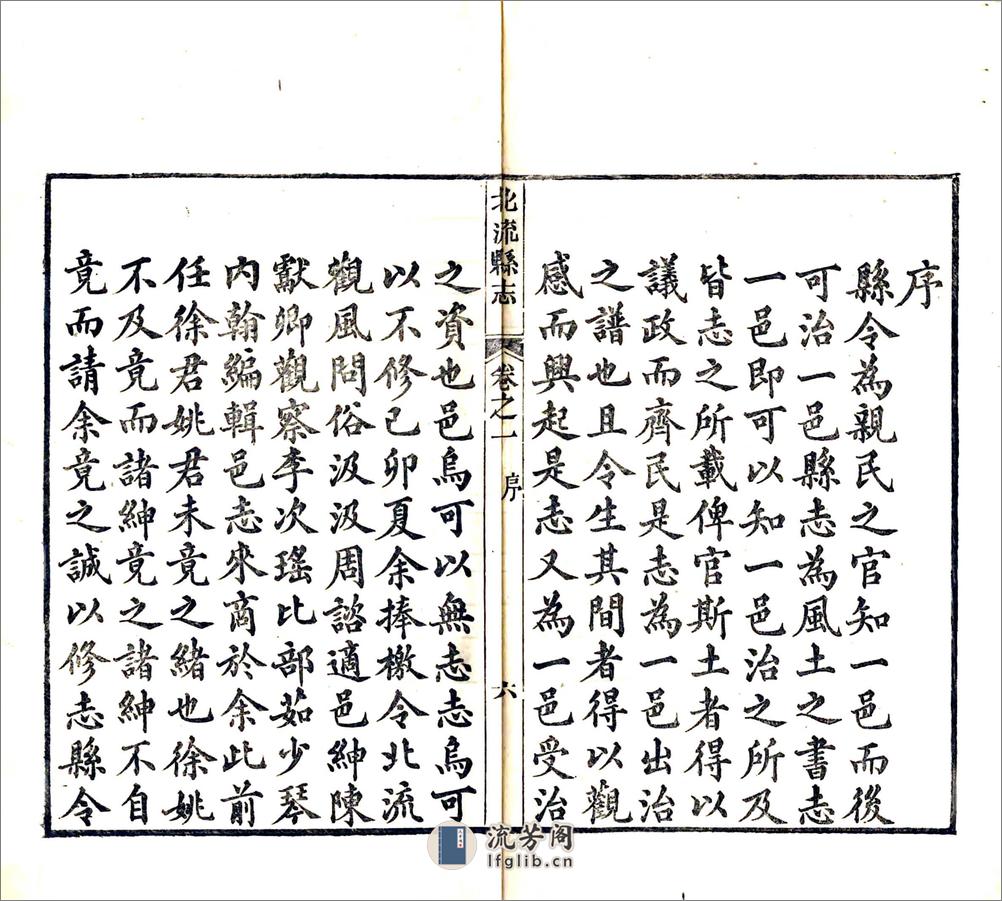 序
縣令為親民之官知一邑而後
可治一邑縣志為風土之書志
一邑即可以知一邑治之所及
皆志之所載俾官斯土者得以
議政而齊民是志為一邑出治
之譜也且令生其間者得以觀
感而興起是志又為一邑受治
北流縣志 卷之一 序 六
之資也邑烏可以無志志烏可
以不修己卯夏余捧檄令北流
觀風問俗汲汲周諮適邑紳陳
獻卿觀察李次瑤比部茹少琴
內翰編輯邑志來商於余此前
任徐君姚君未竟之緒也徐姚
不及竟而諸紳竟之諸紳不自
竟而請余竟之誠以修志縣令
流芳阁
lfglib.cn